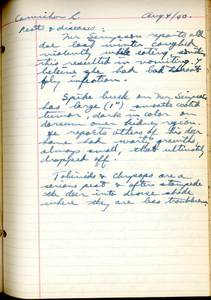 Cornishon L. Aug 4/40.
Pests & diseases:
Mr Simpson reports old
doe last winter coughed
violently while eating &
this resulted in vomiting. I
believe she had bad throat
fly infection.
Spike buck on Mr Simpson
has large (1") smooth wart
tumor, dark in color on
dorsum over kidney region
He reports others of his deer
have had warty growths
always small, that ultimately
dropped off.
Tabinids & chrysops are a
serious pest & often stampede
the deer into dense shade
where they are less troublesome